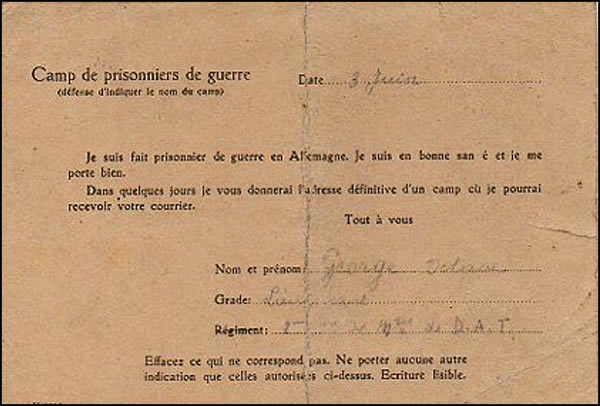 Camp de prisonniers de guerre
(défense d'indiquer le nom du camp)
Date 3 Juin
Je suis fait prisonnier de guerre en Allemagne. Je suis en bonne san é et je me
porte bien.
Dans quelques jours je vous donnerai l'adresse définitive d'un camp où je pourrai
recevoir votre courrier.
Tout à vous
Nom et prénom: George Octave
Grade: Lieutenant
Régiment: de D.A.T
Effacez ce qui ne correspond pas. Ne porter aucune autre
indication que celles autorisées ci-dessus. Ecriture lisible.